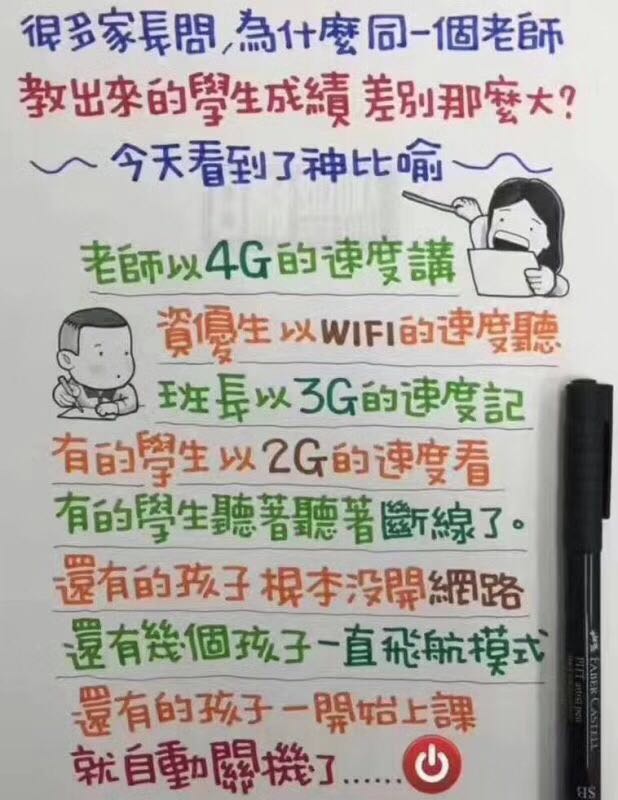 很多家長問,為什麼同一個老師
教出來的學生成績差別那麼大?
今天看到了神比喻
老師以4G的速度講
資優生以WIFI的速度聽
班長以3G的速度記
有的學生以2G的速度看
有的學生聽著聽著斷線了。
還有的孩子根本没開網路
還有幾個孩子一直飛航模式
還有的孩子一開始上課
就自動關機了......
FABER-CASTELL
PITT artist pen
SB